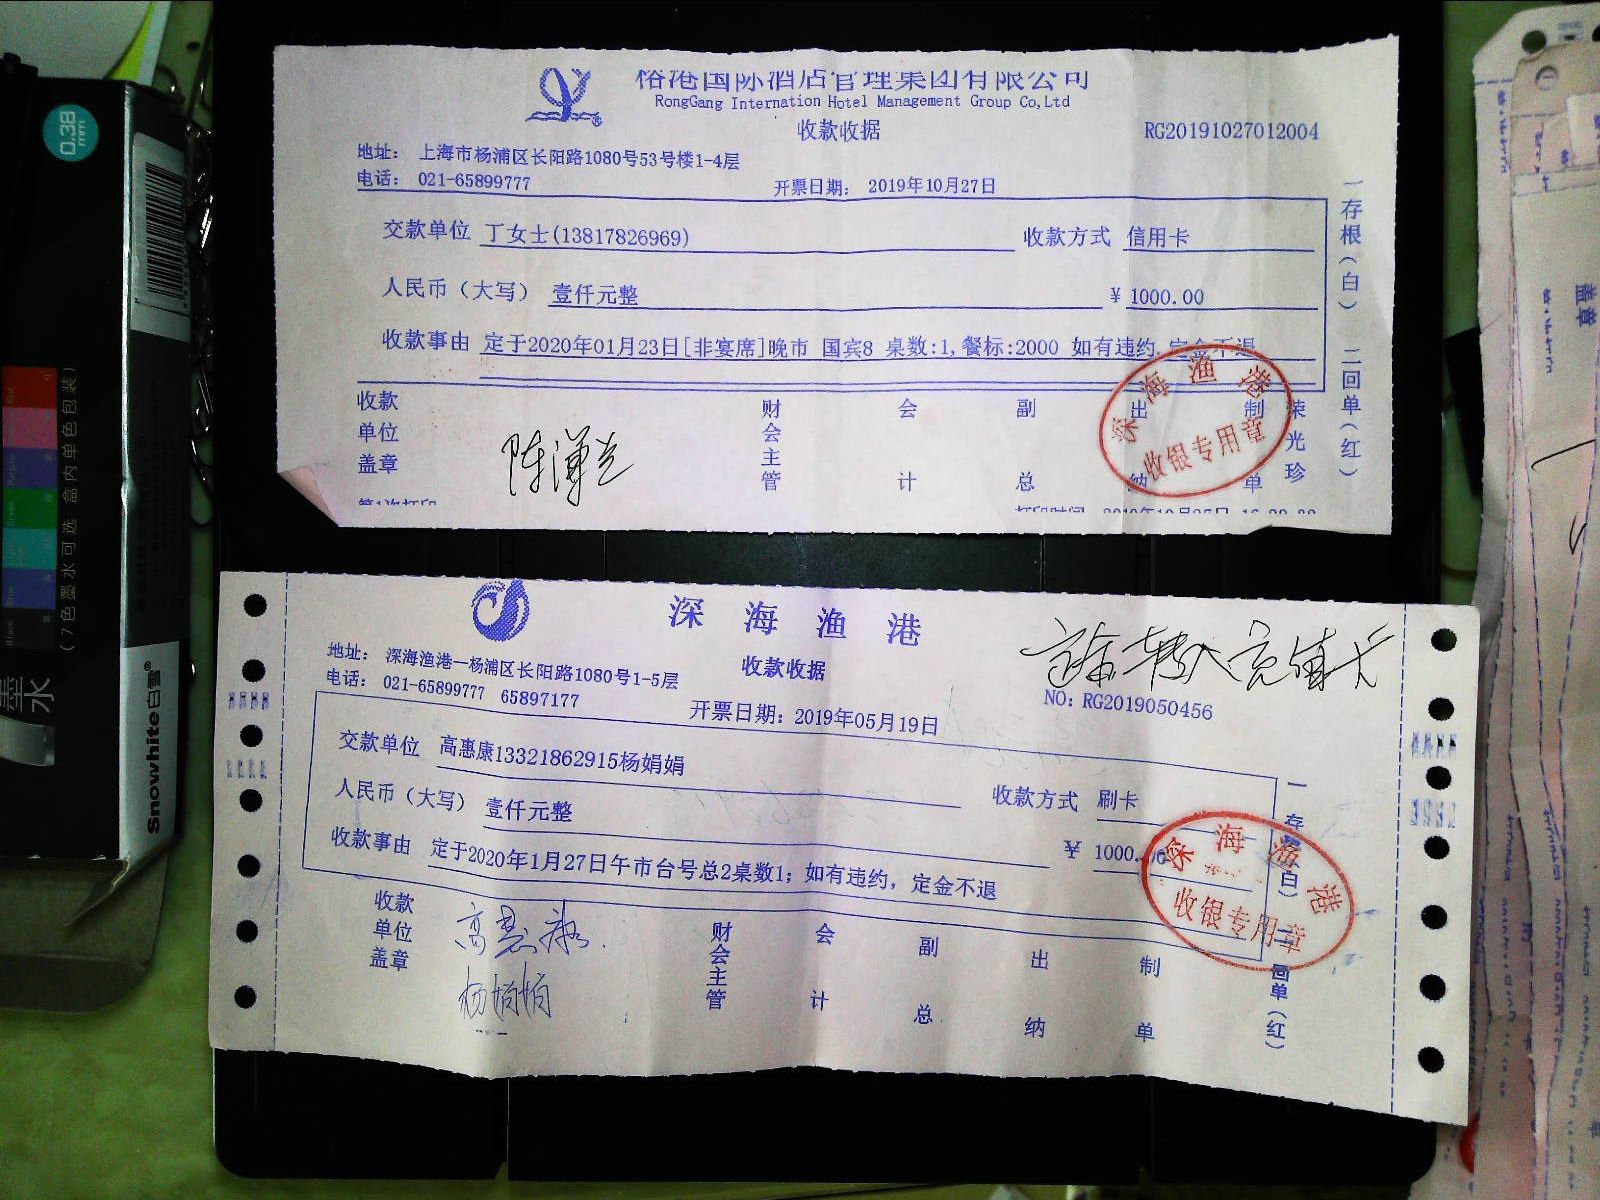 俗港国际酒店管理集团有限公司
RongGang Internation Hotel Management Group Co,Ltd
收款收据
RG20191027012004
地址: 上海市杨浦区长阳路1080号53号楼1-4层
电话: 021-65899777
开票日期: 2019年10月27日
交款单位 丁女士(13817826969) 收款方式 信用卡
人民币(大写) 壹仟元整 ¥ 1000.00
收款事由 定于2020年01月23日[非宴席]晚市 国宾8 桌数:1,餐标:2000 如有违约,定金不退
收款单位盖章
财会主管
会计
副总
出纳
制单
荣光珍
一存根(白) 二回单(红)
深海渔港
收银专用章
深海渔港
收款收据
地址: 深海渔港一杨浦区长阳路1080号1-5层
电话: 021-65899777 65897177
开票日期: 2019年05月19日
NO: RG2019050456
转入充值卡
交款单位 高惠康13321862915杨娟娟
收款方式 刷卡
人民币(大写) 壹仟元整
¥ 1000.00
收款事由 定于2020年1月27日午市台号总2桌数1; 如有违约, 定金不退
收款单位盖章
高惠康
杨娟娟
财会主管
会计
副总
出纳
制单
深海渔港
收银专用章
0.38
mm
(7色墨水可选 盒内单色包装)
墨水
Snowhite白雪®
盖章